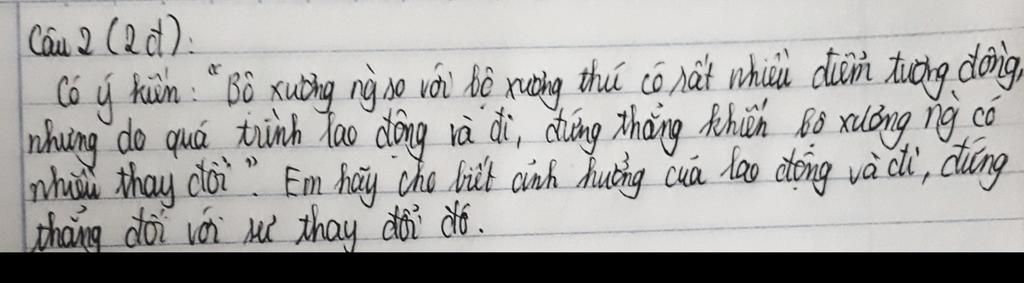 Câu 2 (2đ):
Có ý kiến: "Bộ xương ng` so với bộ xương thú có rất nhiều điểm tương đồng,
nhưng do quá trình lao động và đi, đứng thẳng khiến bộ xương ng` có
nhiều thay đổi". Em hãy cho biết ảnh hưởng của lao động và đi, đứng
thẳng đối với sự thay đổi đó.